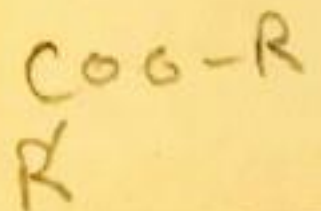 COO-R
R'